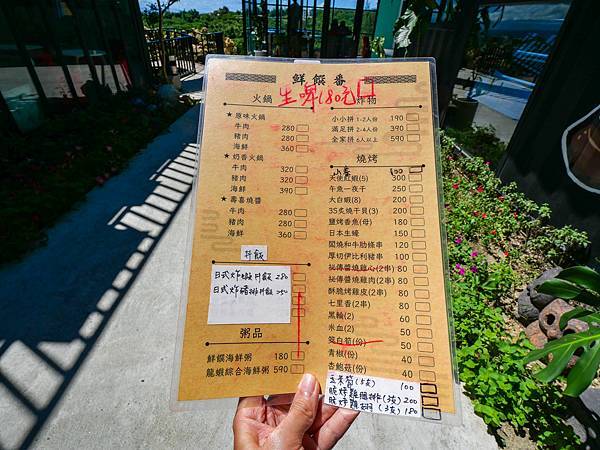 鮮饌番
生啤180元
火鍋
★原味火鍋
牛肉 280
豬肉 280
海鮮 360
★奶香火鍋
牛肉 320
豬肉 320
海鮮 390
★壽喜燒醬
牛肉 280
豬肉 280
海鮮 360
丼飯
日式炸蝦丼飯 280
日式炸豬排丼飯 250
粥品
鮮饌海鮮粥 180
龍蝦綜合海鮮粥 590
炸物
小小拼 1-2人份 190
滿足拼 2-4人份 390
全家拼 6人以上 590
燒烤
小卷 600
天使紅蝦(5) 300
午魚一夜干 250
大白蝦(8) 200
3S炙燒干貝(3) 200
鹽烤香魚(母) 180
日本生蠔 150
闇燒和牛肋條串 120
厚切伊比利豬串 100
祕傳醬燒雞心(2串) 80
祕傳醬燒雞肉(2串) 80
酥脆烤雞皮(2串) 80
七里香(2串) 80
黑輪(2) 60
米血(2) 50
筊白筍(份) 50
青椒(份) 40
杏鮑菇(份) 40
玉米筍(5支) 100
燒烤雞腿排(3支) 200
燒烤雞翅(3支) 180